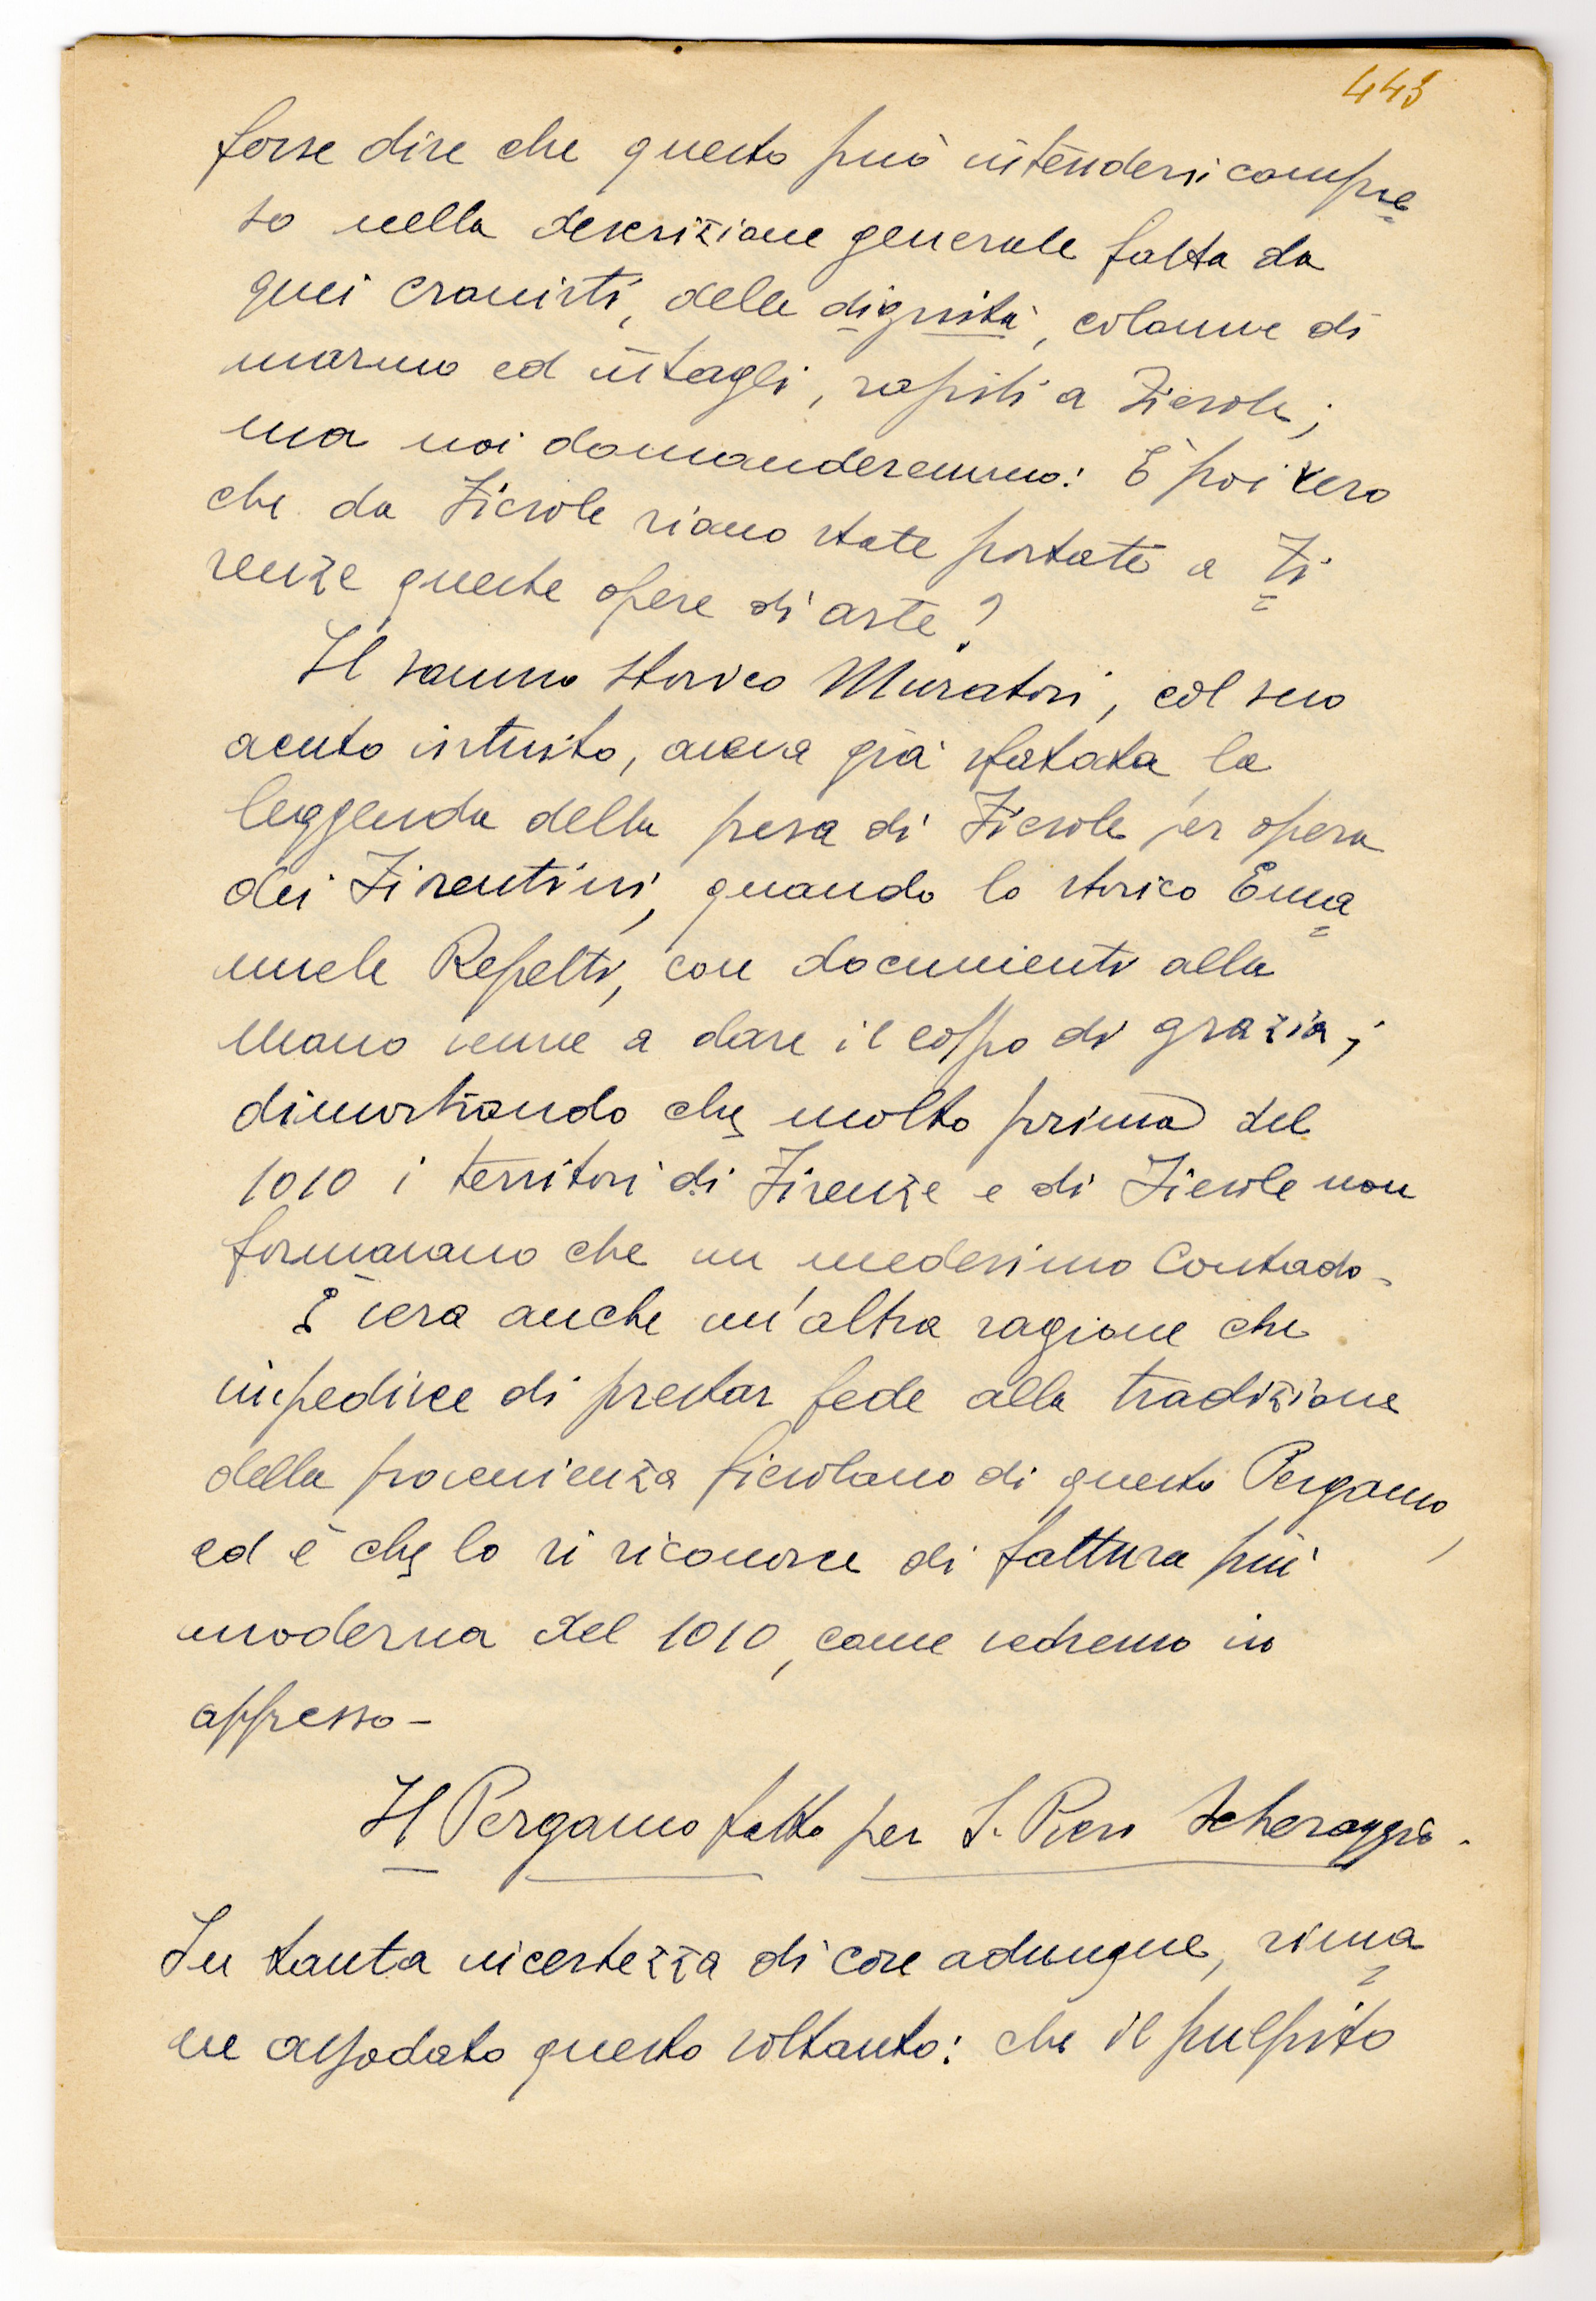 443
forse dire che questo può intendersi compre
so nella descrizione generale fatta da
quei cronisti, delle dignità, colonne di
marmo ed intagli, rapiti a Fiesole;
ma noi domanderemmo: È poi vero
che da Fiesole siano state portate a Fi
renze queste opere di arte?
Il sommo storico Muratori, col suo
acuto intuito, aveva già sfatata la
leggenda della presa di Fiesole per opera
dei Fiorentini, quando lo storico Ema
nuele Repetti, con documenti alla
mano venne a dare il colpo di grazia;
dimostrando che molto prima del
1010 i territori di Firenze e di Fiesole non
formavano che un medesimo Contado-
E vera anche un'altra ragione che
impedisce di prestar fede alla tradizione
della provenienza fiesolano di questo Pergamo,
ed è che lo si riconosce di fattura più
moderna del 1010, come vedremo in
appresso-
Il Pergamo fatto per S. Piero Scheraggio-
In tanta incertezza di cose adunque, rima
ne assodato questo soltanto: che il pulpito